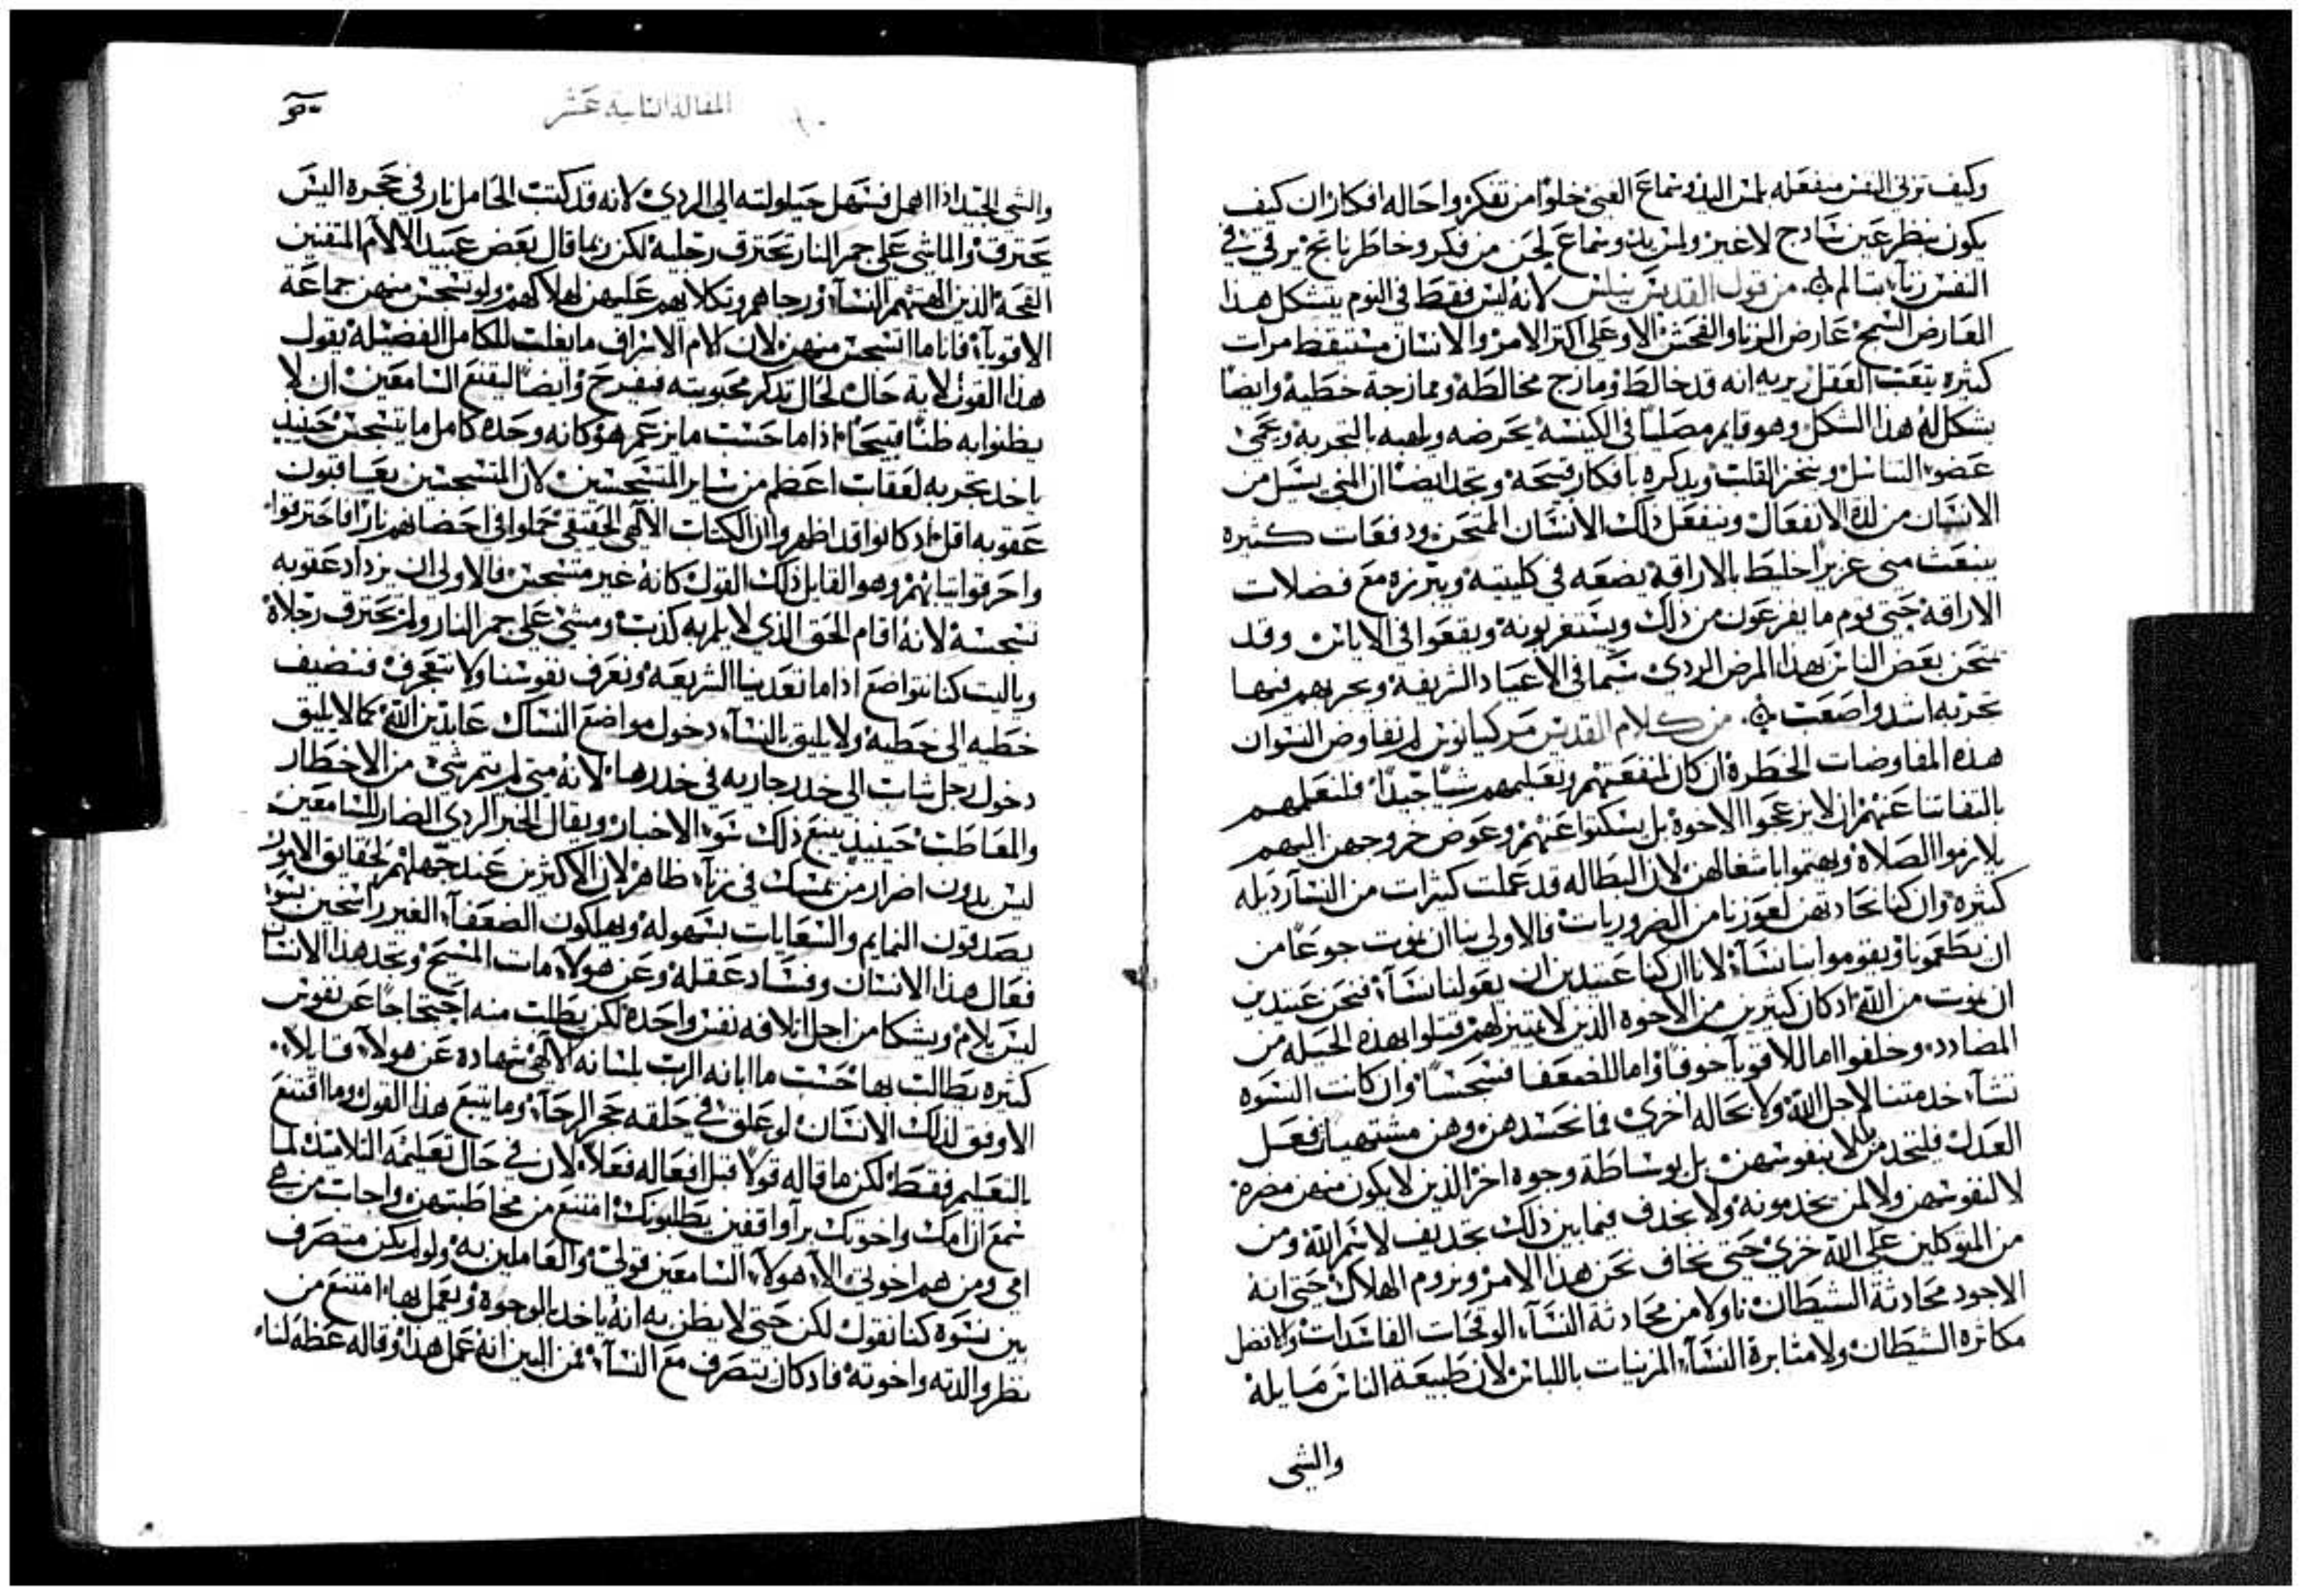 وكيف تزني النفس منفعله بلمس اليد وسماع الغنى خلوا من تفكر واحاله افكار ان كيف
يكون بنظر عين سادج لا غير ولمس يد وسماع لحن من فكر وخاطر ناتج يرقي في
النفس زناء بتا لم من قول القديس نيلس لانه ليس فقط في النوم يتشكل هذا
العارض السمج عارض الزنا والفحش الا وعلى اكثر الامر والانسان مستيقظ مرات
كثيره يتعب العقل يريه انه قد خالط ومازج مخالطة وممازجة خطية وايضا
يشكل له هذا الشكل وهو قايم مصليا في الكنيسة يحرضه ويلهبه بالتجربة ويحمى
عضو التناسل وينخز القلب ويدكره بافكار قبيحة وتجد ايضا ان المني يسيل من
الانسان من لذة الانفعال وينفعل ذلك الانسان الممتحن ودفعات كثيره
ينبعث مني غزير احليط بالاراقة يضعه في كليتيه ويبرزه مع فضلات
الاراقة حتى يوم ما يفزعون من ذلك ويستغربونه ويقعوا في الاياس وقد
تمتحن بعض الناس بهذا المرض الردي سيما في الاعياد الشريفة ويجربهم فيها
تجربه اشد واصعب من كلام القديس مركيانوس لم نفاوض النسوان
هذه المفاوضات الخطرة ان كان لمنفعتهم وتعليمهم شيا جيدا فلنعلمهم
بالتفاتنا عنهم ان لا يزعجوا الاخوة بل يسكتوا عنهم وعوض خروجهن اليهم
يلازموا الصلاة ويهتموا باشغالهن لان البطاله قد عملت كثيرات من النساء رديله
كثيرة وان كنا نحادثهن لعوزنا من الضروريات فالاولى بنا ان نموت جوعا من
ان يطعمونا ويقوموا بنا نساء لاننا ان كنا عتيدين ان يعولنا نساء فنحن عتيدين
ان نموت من الله اذ كان كثيرين من الاخوة الذين لا تمييز لهم قتلوا بهذه الحيله من
المضادد وخلفوا اما للاقوياء خوفا واما للضعفا فسجسا وان كانت النسوه
تشاء خدمتنا لاجل الله ولا بحاله اخرى فما نحسدهن وهن مشتهيات فعل
العدل فليتخدمن لا بنفوسهن بل بوساطة وجوه اخر الذين لا يكون منهن مضرة
لا لنفوسهن ولا لمن يخدمونه ولا يجدف فيما بين ذلك تجديف لاسم الله ومن
من المتوكلين على الله خزي حتى نخاف نحن هذا الامر ونروم الهلاك حتى انه
الاجود محادثة الشيطان ناولا من محادثة النساء الوقحات الفاسدات ولا نفضل
مكاثرة الشيطان ولا مثابرة النساء المزينات باللباس لان طبيعة الناس مايلة
والشي
المقالة الثانية عشر
والشي الجيد اذا اهمل فسهل حيلولته الى الردي لانه قد كتب الحامل نار في حجره اليس
يحترق والماشي على جمر النار تحترق رجليه لكن ربما قال بعض عبيد الالام المتقنين
القحة الذين الهتهم النساء ورجاهم وتكلايهم عليهن لهلاكهم ولو تسجس منهن جماعة
الاقوياء فانا ما اتسجس منهن لان الام الاسراف ما يغلب للكامل الفضيلة يقول
هذا القول لاية حال لحال تذكر محبوبيته فيفرح وايضا ليقنع السامعين ان لا
يظنوا به ظنا قبيحا اذا ما حسب ما يزعم هو كانه وحده كامل ما يتسجس حينيذ
ياخذ تجربه لعقاب اعظم من ساير المتسجسين لان المتسجسين يعاقبون
عقوبه اقل اذ كانوا قد اظهروا ان الكتاب الالهي الحقيقي حملوا في احضانهم نارا فاحترقوا
واحرقوا ثيابهم وهو القايل ذلك القول كانه غير متسجس فالاولى ان يزداد عقوبه
تسجسه لانه اقام الحق الذي لا يلم به كذب ومشى على جمر النار ولم تحترق رجلاه
وياليت كنا نتواضع اذا ما تعدينا الشريعة ونعرف نفوسنا ولا نتعجرف فنضيف
خطيه الى خطيه ولا يليق بالنساء دخول مواضع النساك عابدين الله كما لا يليق
دخول رجل شاب الى خدر جاريه في خدرها لانه متى لم يتم شي من الاخطار
والمعاطب حينيذ يتبع ذلك سوء الاخبار ويقال الخبر الردي الضار للسامعين
ليس بدون اضرار من تمسك في زناء ظاهر لان الاكثرين عند جهلهم لحقايق الامور
يصدقون النمايم والسعايات بسهوله ويهلكون الضعفاء الغير راسخين بسوء
فعال هذا الانسان وفساد عقله وعن هولاء مات المسيح وتجد هذا الانسان
ليس يلام ويشكا من اجل اتلافه نفس واحده لكن يطلب منه احتجاجا عن نفوس
كثيره يطالب بها حسب ما ابانه الرب بلسانه الالهي شهاده عن هولاء قايلا
الاوفق لذلك الانسان لو علق في حلقه حجر الرحاء وما يتبع هذا القول وما اقتنع
بالتعليم فقط لكن ما قاله قولا قبل افعاله فعلا لان في حال تعليمه التلاميذ لما
سمع ان امك واخوتك برا واقفين يطلبونك امتنع من مخاطبتهن واجاب من هي
امي ومن هم اخوتي الا هولاء السامعين قولي والعاملين به ولو لم يكن متصرف
بين نسوة كنا نقول لكن حتى لا يظن به انه ياخذ بالوجوه ويعمل بها امتنع من
نظر والدته واخوته فاذ كان يتصرف مع النساء فمن البين انه عمل هذا وقاله عظه لنا